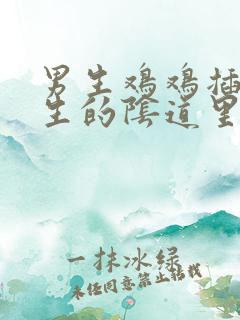 男生鸡鸡插
生的陰道里
一抹冰绿
未经同意禁止搭载